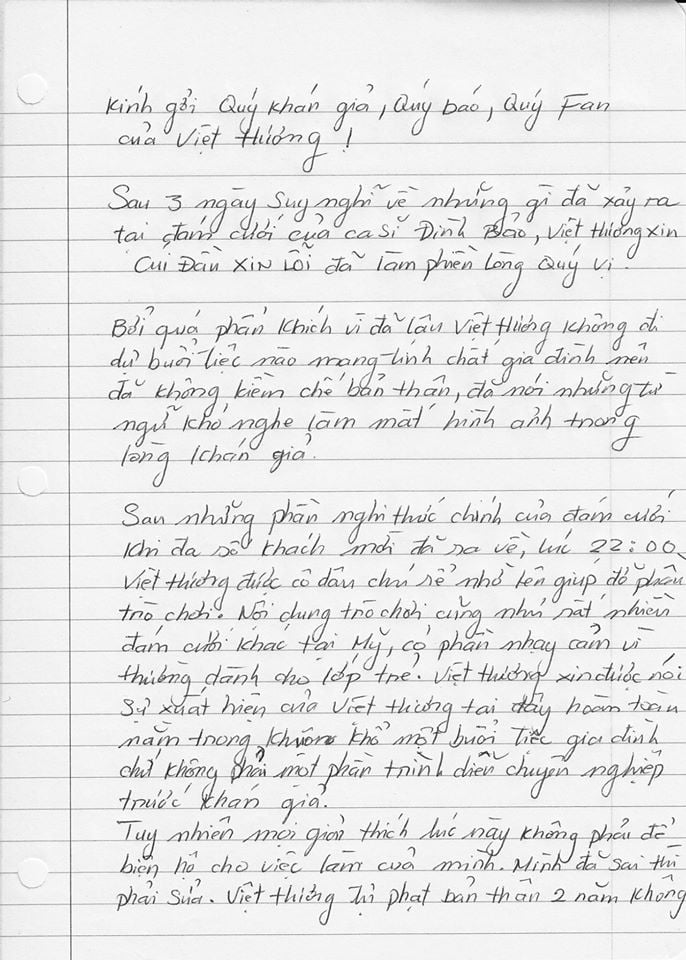 Kính gởi Quý khán giả, Quý báo, Quý Fan
của Việt Hương !
Sau 3 ngày suy nghĩ về những gì đã xảy ra
tại đám cưới của ca sĩ Đình Bảo, Việt Hương xin
CúI ĐẦU XIN LỖI đã làm phiền lòng Quý vị.
Bởi quá phấn khích vì đã lâu Việt Hương không đi
dự buổi tiệc nào mang tính chất gia đình nên
đã không kiềm chế bản thân, đã nói những từ
ngữ khó nghe làm mất hình ảnh trong
lòng khán giả.
Sau những phần nghi thức chính của đám cưới
khi đa số khách mời đã ra về, lúc 22:00,
Việt Hương được cô dâu chú rể nhờ lên giúp đỡ phần
trò chơi. Nội dung trò chơi cũng như rất nhiều
đám cưới khác tại Mỹ, có phần nhạy cảm vì
thường dành cho lớp trẻ. Việt Hương xin được nói
sự xuất hiện của Việt Hương tại đây hoàn toàn
nằm trong khuôn khổ một buổi tiệc gia đình
chứ không phải một phần trình diễn chuyên nghiệp
trước khán giả.
Tuy nhiên mọi giải thích lúc này không phải để
biện hộ cho việc làm của mình. Mình đã sai thì
phải sửa. Việt Hương tự phạt bản thân 2 năm không